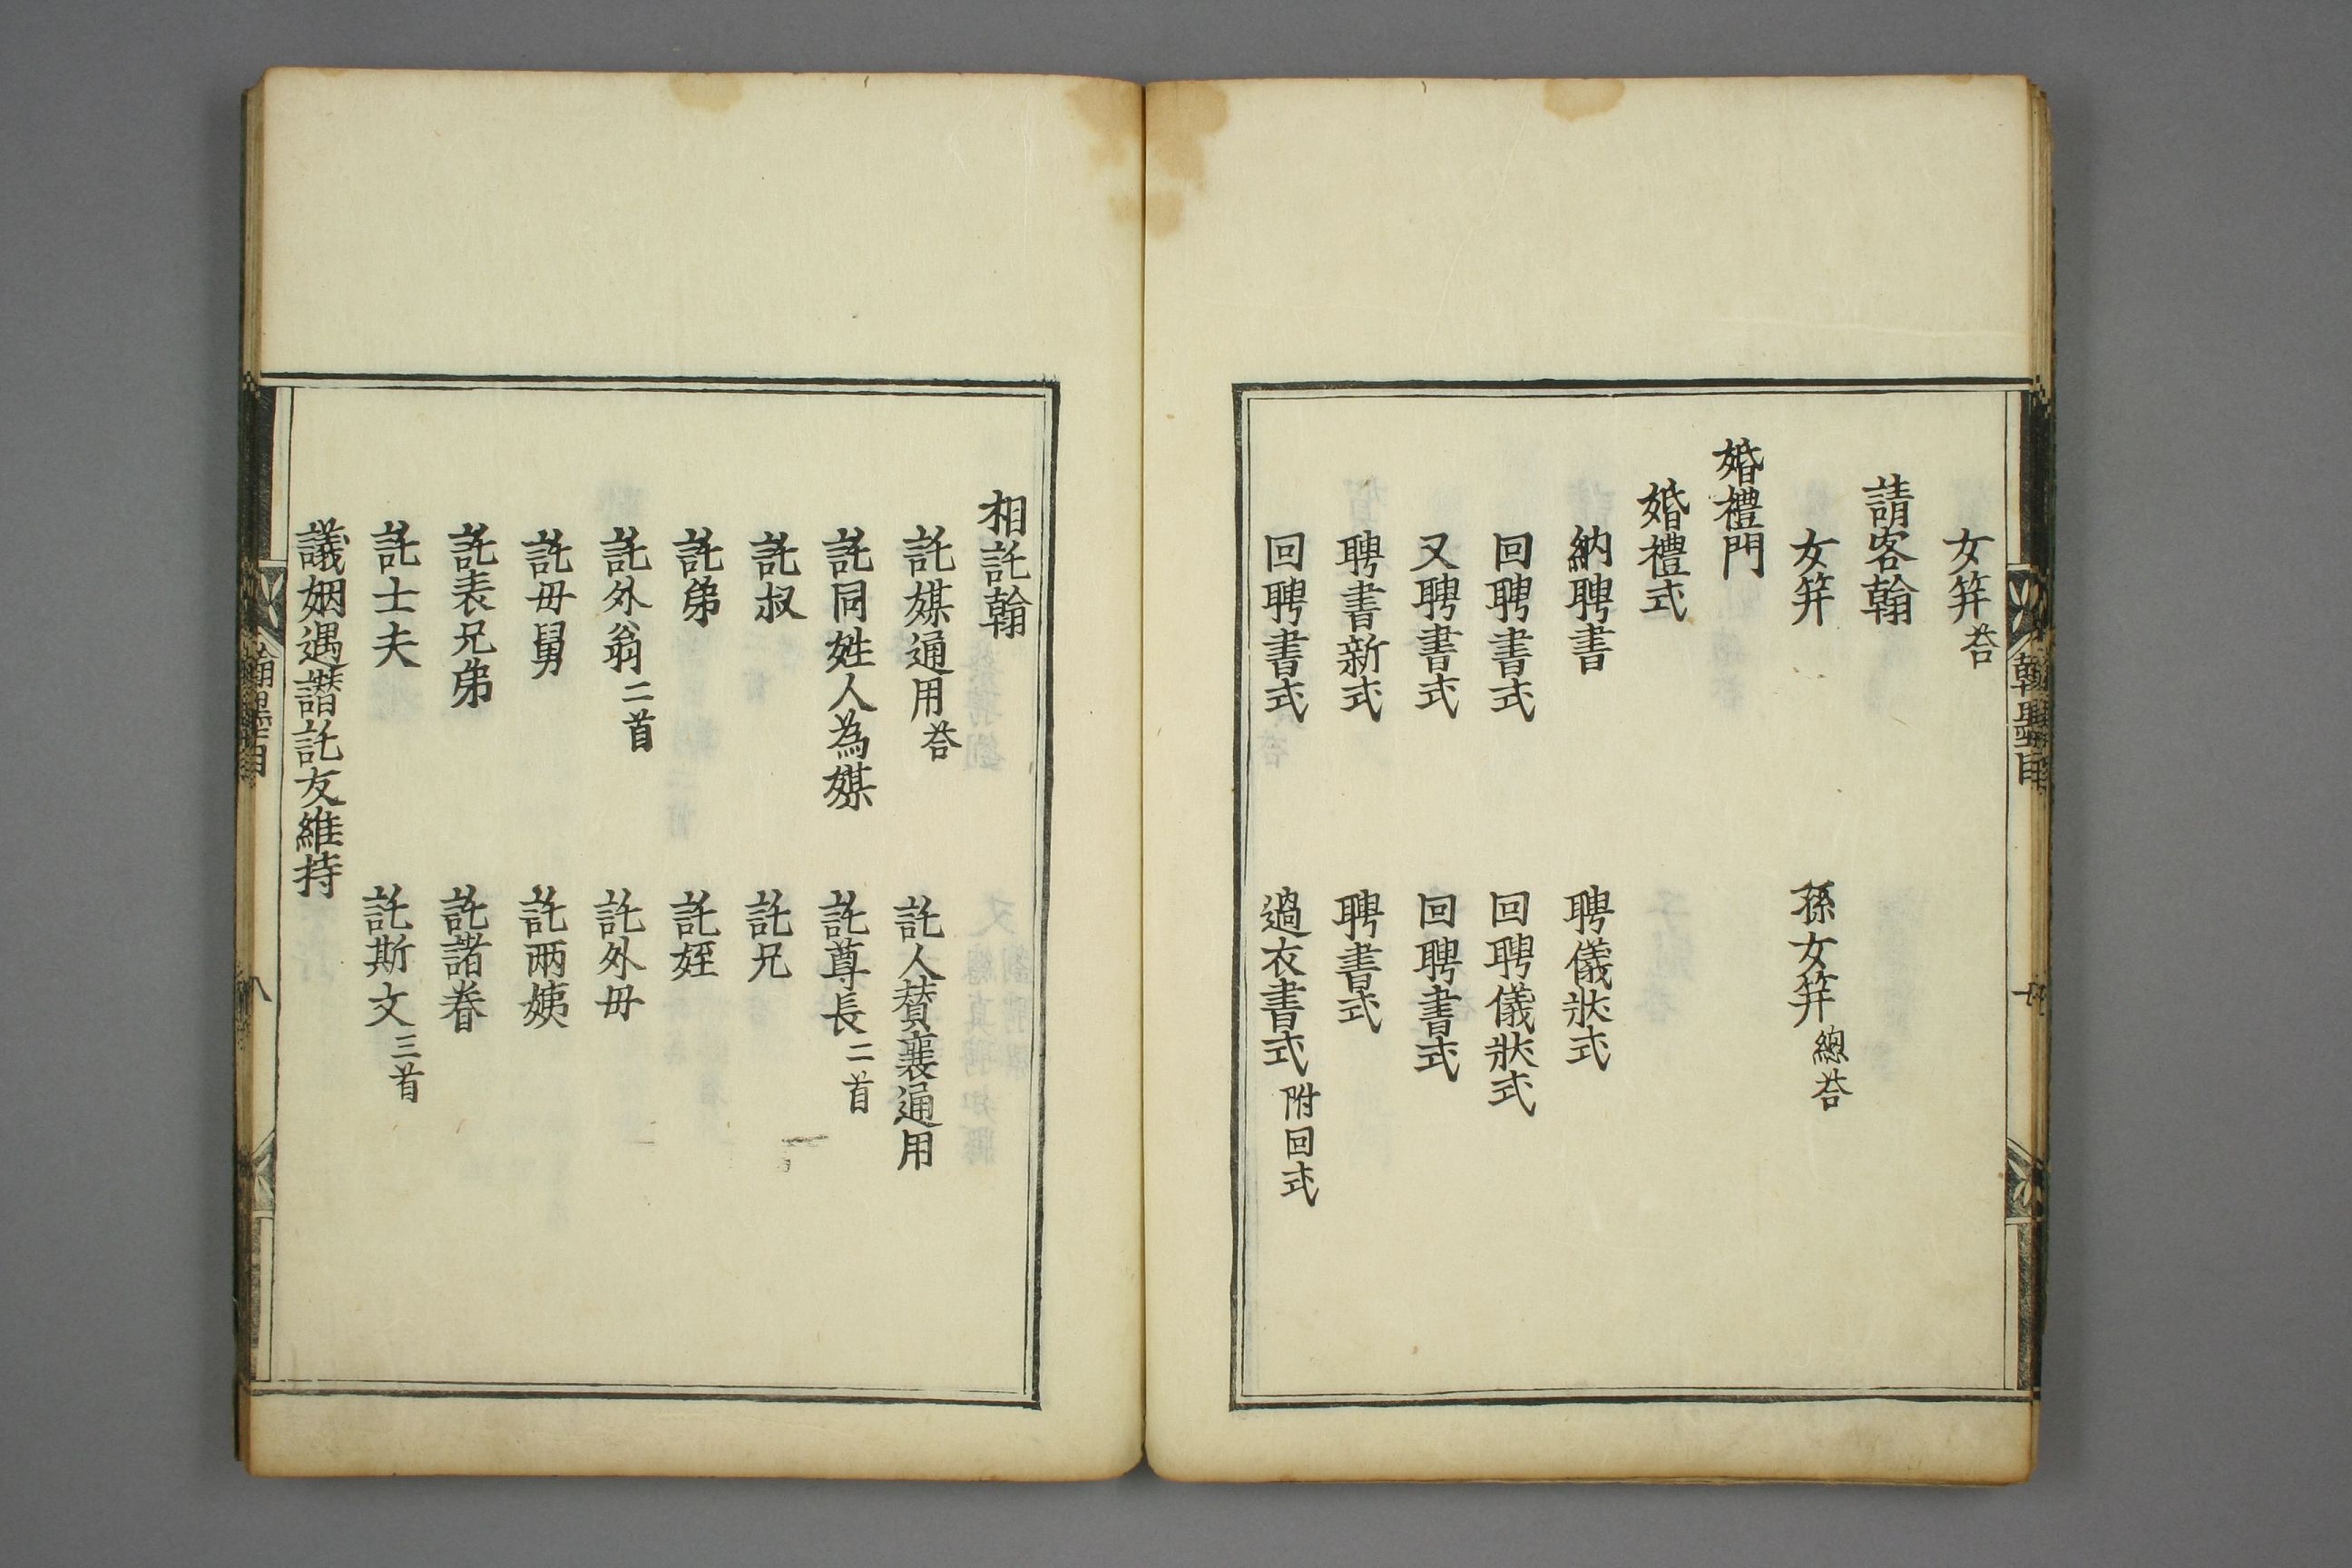 女筓荅
請客翰
女筓　孫女筓總荅
婚禮門
婚禮式
納聘書　聘儀狀式
回聘書式　回聘儀狀式
又聘書式　回聘書式
聘書新式　聘書式
回聘書式　過衣書式附回式
相託翰
託媒通用荅　託人賛襄通用
託同姓人為媒　託尊長二首
託叔　託兄
託弟　託姪
託外翁二首　託外毋
託毋舅　託兩姨
託表兄弟　託諸眷
託士夫　託斯文三首
議姻遇譖託友維持
八